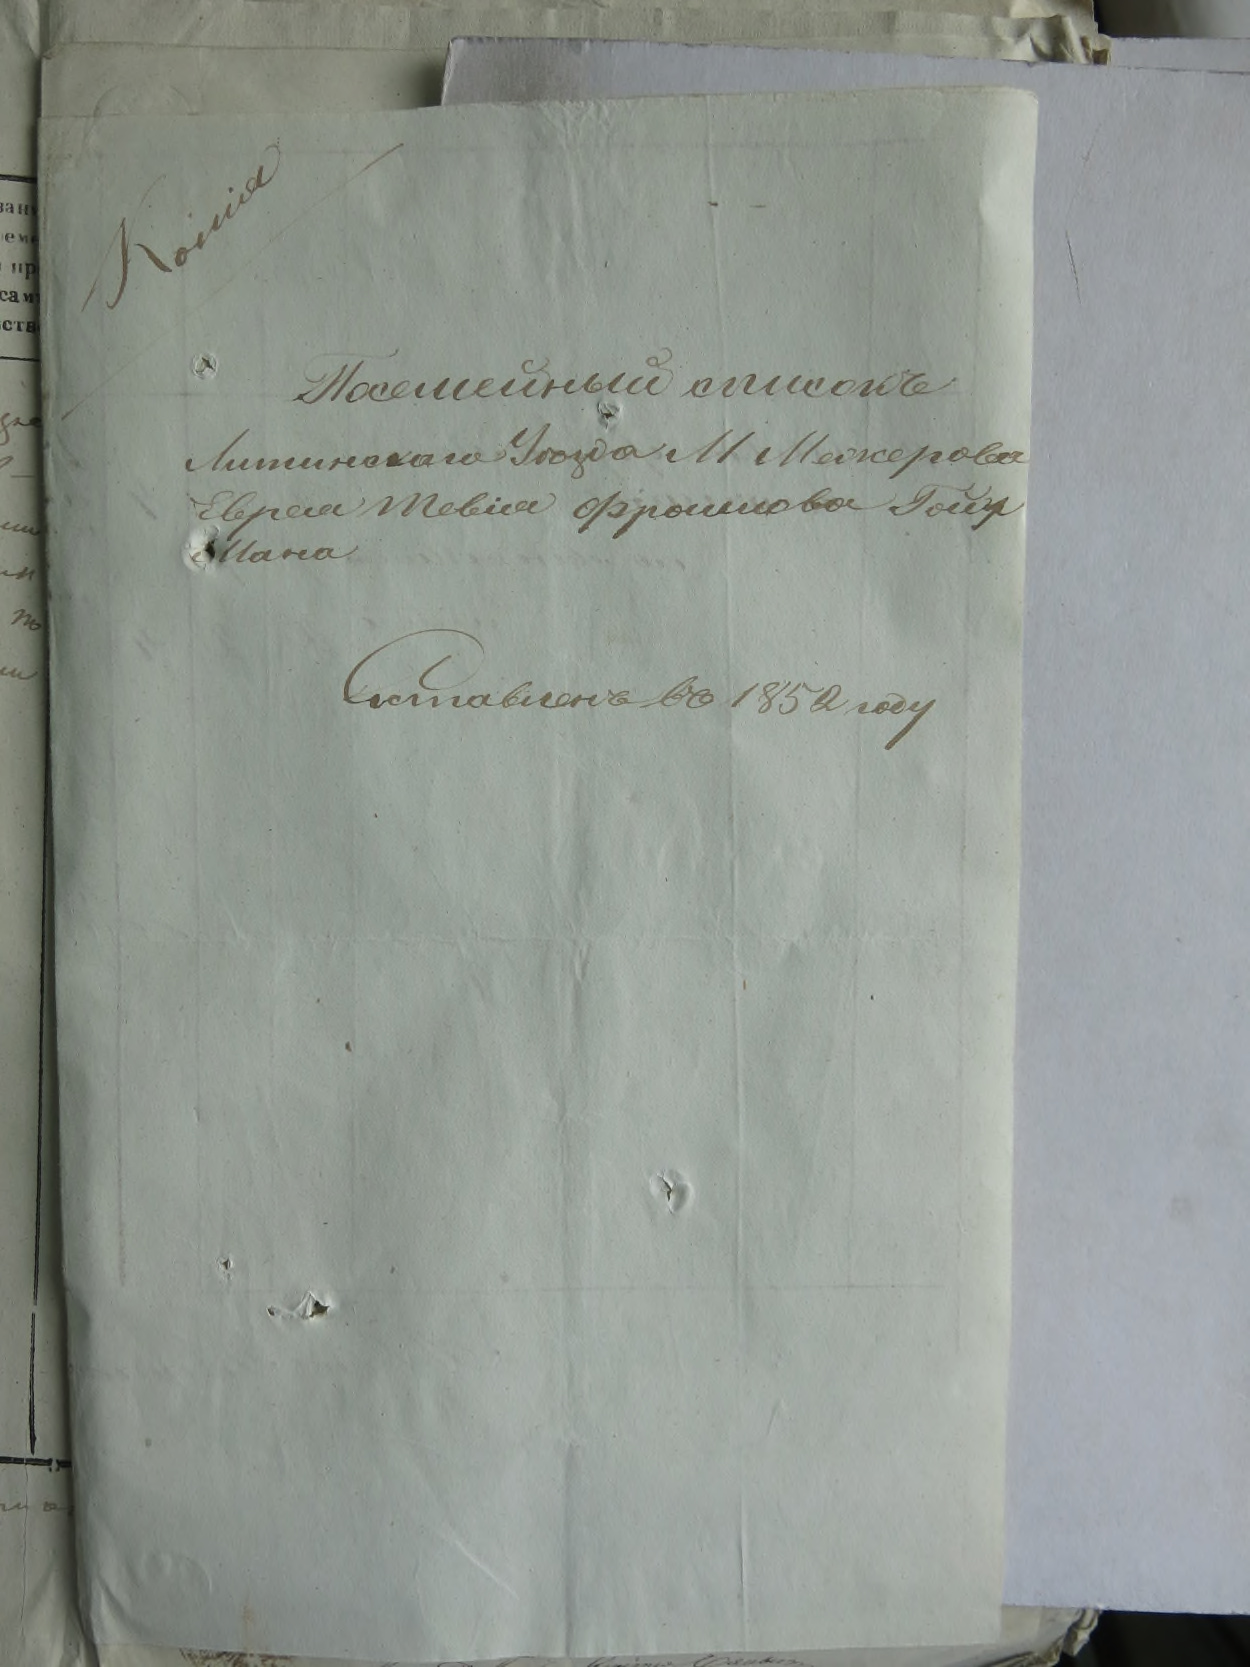 Копія
Посемейный списокъ
Литинскаго Уѣзда М Межерова
Еврея Тевія Фроимова Гойх
Мана
Составленъ въ 1852 году